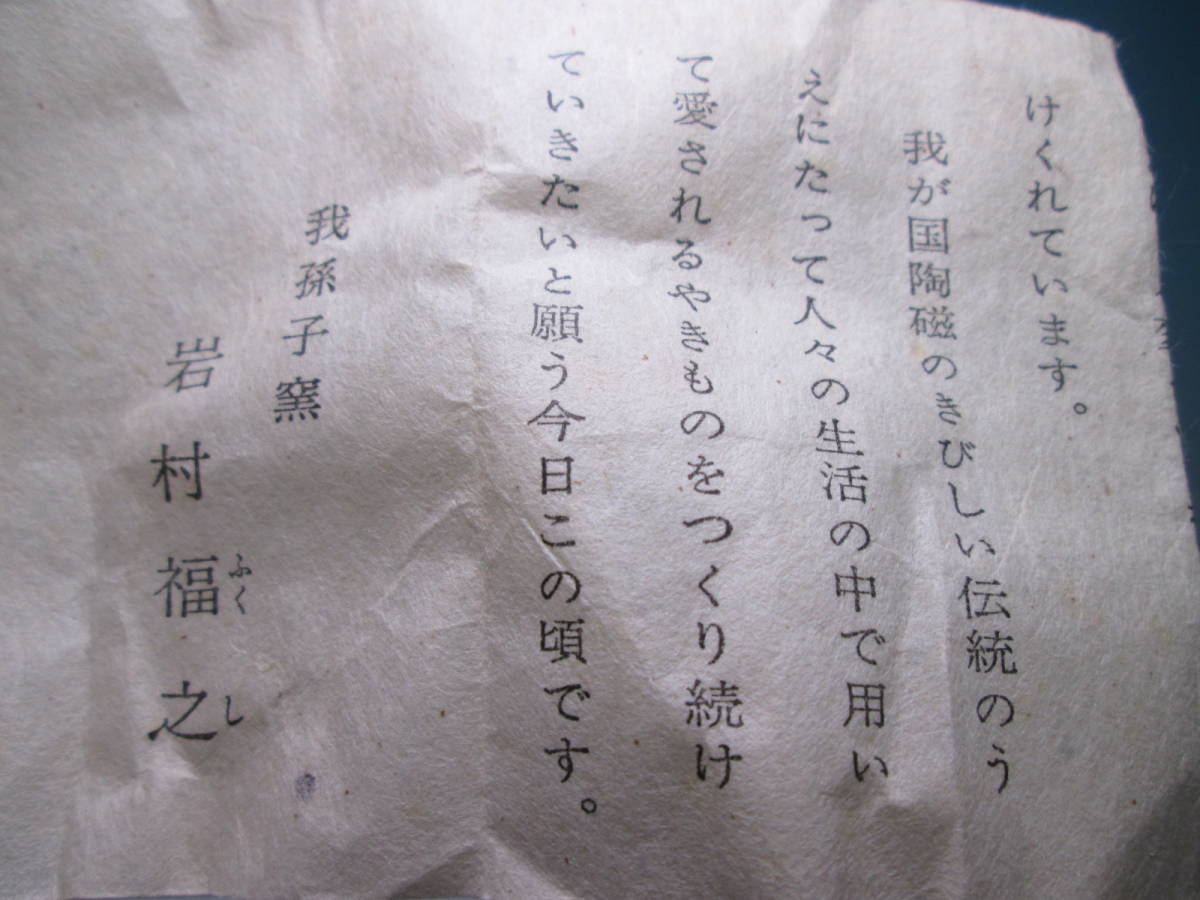 けくれています。
我が国陶磁のきびしい伝統のう
えにたって人々の生活の中で用い
て愛されるやきものをつくり続け
ていきたいと願う今日この頃です。
我孫子窯
岩村福之
ふくし